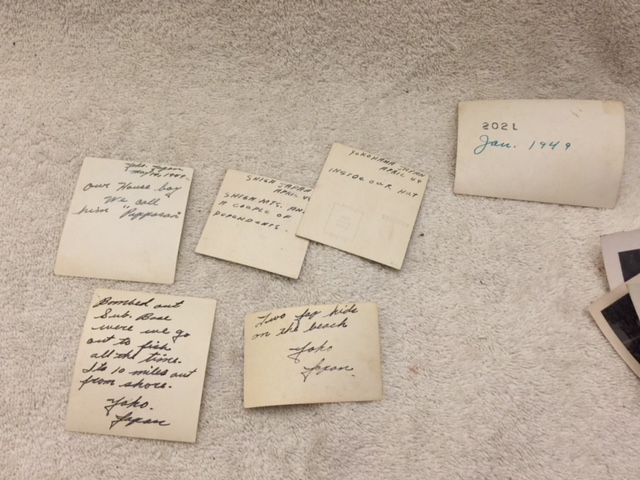 Yoko. Japan
May 14, 1949.
our House boy
We call
him "Poppasan"
SHIGA JAPAN
APRIL 49
SHIGA MTS. AND
A COUPLE OF
DEPENDENTS.
YOKOHAMA JAPAN
APRIL 49
INSIDE OUR HUT
2021
Jan. 1949
Bombed out
Sub. Base
were we go
out to fish
all the time.
Its 10 miles out
from shore.
Yoko.
Japan
Two Jap kids
on the beach
Yoko
Japan.